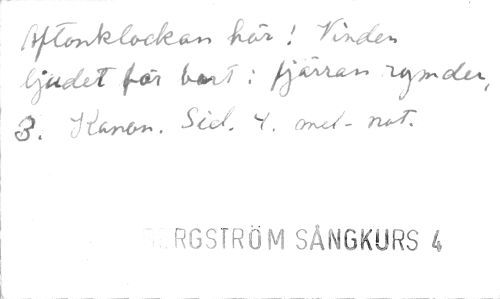 Aftonklockan hör! Vinden
ljudet för bort i fjärran rymder,
3. Kanon. Sid. 4. mel-not.
BERGSTRÖM SÅNGKURS 4